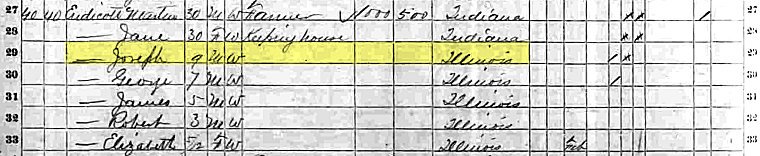 27 40 40 Endicott Martin 30 M W Farmer 1000 500 Indiana x x 1 27
28 — Jane 30 F W Keeping house Indiana x x 28
29 — Joseph 9 M W Illinois 1 x 29
30 — George 7 M W Illinois 1 30
31 — James 5 M W Illinois 31
32 — Robert 3 M W Illinois 32
33 — Elizabeth 5/12 F W Illinois Feb 33